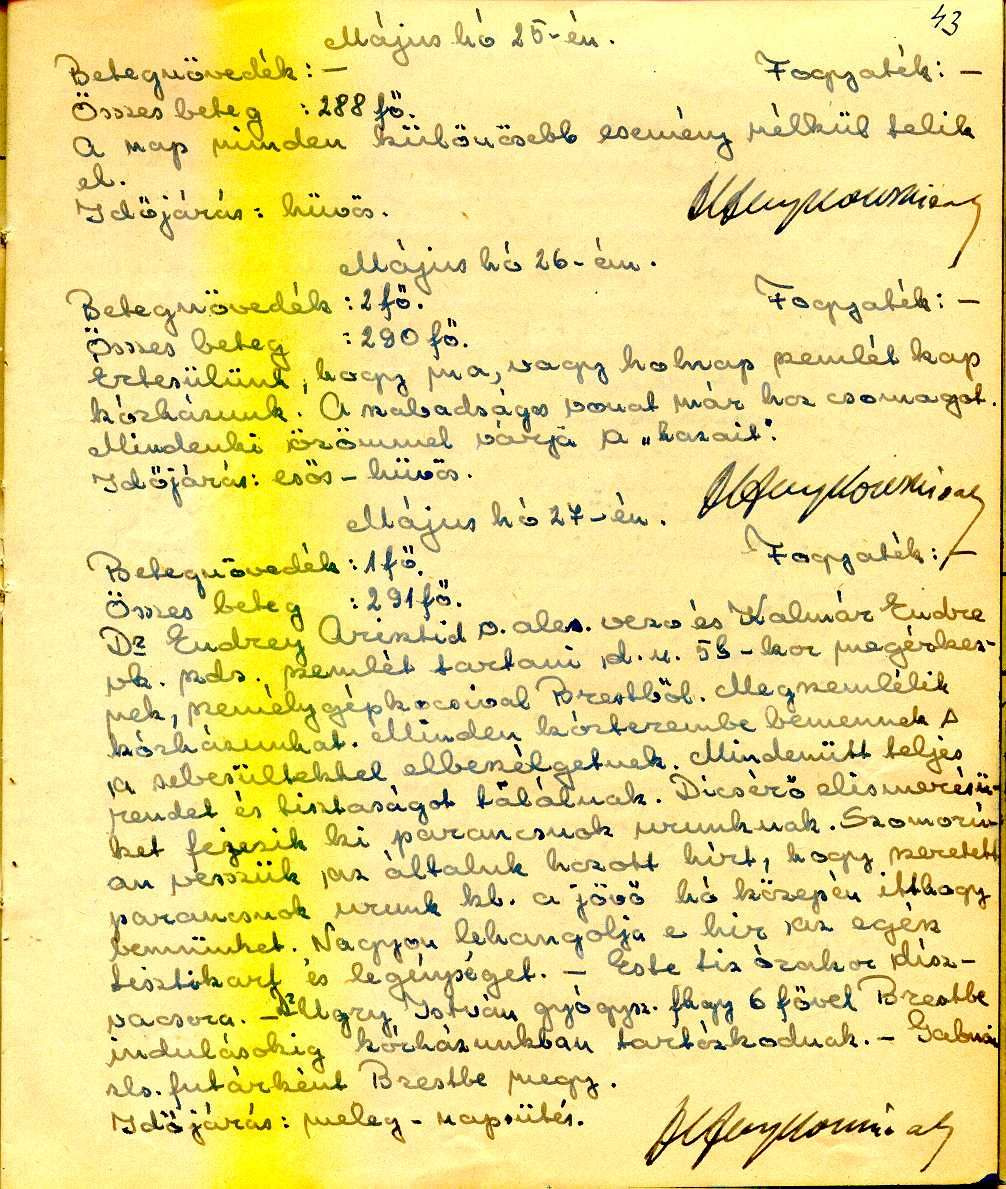 43
Május hó 25-én.
Betegnövedék: – Fogyaték: –
Összes beteg : 288 fő.
A nap minden különösebb esemény nélkül telik
el.
Időjárás: hüvös.
Május hó 26-án.
Betegnövedék : 2 fő. Fogyaték: –
Összes beteg : 290 fő.
Értesülünk, hogy ma, vagy holnap szemlét kap
kórházunk. A szabadságos vonat már hoz csomagot.
Mindenki örömmel várja a „hazait".
Időjárás: esős – hüvös.
Május hó 27-én.
Betegnövedék : 1 fő. Fogyaték: –
Összes beteg : 291 fő.
Dr Endrey Arisztid o. ales. vezo és Kalmár Endre
vk. szds. szemlét tartani d. u. 5h-kor megérkez-
nek, személygépkocsival Brestből. Megszemlélik
kórházunkat. Minden kórterembe bemennek s
a sebesültekkel elbeszélgetnek. Mindenütt teljes
rendet és tisztaságot találnak. Dicsérő elismerésü-
ket fejezik ki parancsnok urunknak. Szomorú-
an vesszük az általuk hozott hírt, hogy szeretett
parancsnok urunk kb. a jövő hó közepén itthagy
bennünket. Nagyon lehangolja e hir az egész
tisztikart és legénységet. – Este tiz órakor dísz-
vacsora. – Dr Ugry István gyógysz. fhgy 6 fővel Brestbe
indulásukig kórházunkban tartózkodnak. –
sls. futárként Brestbe megy.
Időjárás: meleg – napsütés.